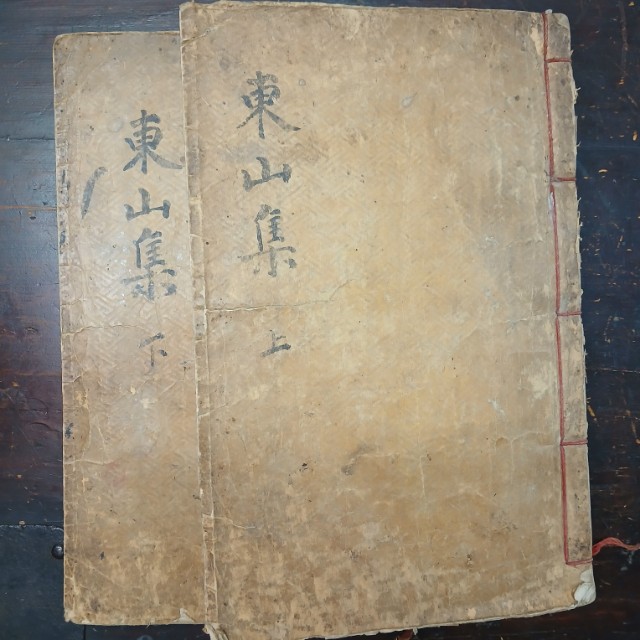 東山集 上
東山集 下